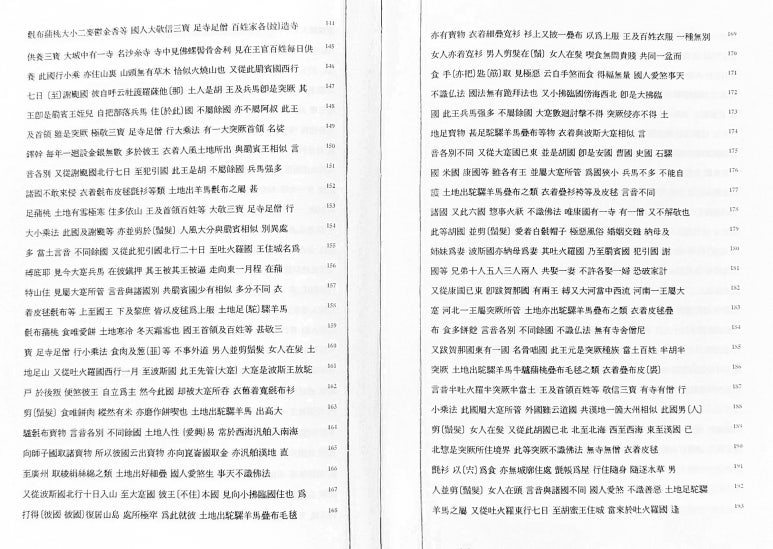 氍布蒲桃大小二麥鬱金香等 國人大敬信三寶 足寺足僧 百姓家各(並)造寺 144
供養三寶 大城中有一寺 名沙糸寺 寺中見佛螺髻骨舍利 見在王官百姓每日供 145
養 此國行小乘 亦住山裏 山頭無有草木 恰似火燒山也 又從此罽賓國西行 146
七日 [至]謝䫻國 彼自呼云社護羅薩他[那] 土人是胡 王及兵馬卽是突厥 其 147
王卽是罽賓王姪兒 自把部落兵馬 住[於]此]國 不屬餘國 亦不屬阿叔 此王 148
及首領 雖是突厥 極敬三寶 足寺足僧 行大乘法 有一大突厥首領 名娑 149
鐸幹 每年一迴設金銀無數 多於彼王 衣着人風土地所出 與罽賓王相似 言 150
音各別 又從謝䫻國北行七日 至犯引國 此王是胡 不屬餘國 兵馬强多 151
諸國不敢來侵 衣着氎布衫皮毬氈衫等類 土地出羊馬氎布之屬 甚 152
足蒲桃 土地有雪極寒 住多依山 王及首領百姓等 大敬三寶 足寺足僧 行 153
大小乘法 此國及謝䫻等 亦並剪於[鬚髮] 人風大分與罽賓相似 別異處 154
多 當土言音 不同餘國 又從此犯引國北行二十日 至吐火羅國 王住城名爲 155
縛底耶 見今大寔兵馬 在彼鎭押 其王被其王被逼 走向東一月程 在蒲 156
特山住 見屬大寔所管 言音與諸國別 共罽賓國少有相似 多分不同 衣 157
着皮毬氎布等 上至國王 下及黎庶 皆以皮毬爲上服 土地足[駝]騾羊馬 158
氎布蒲桃 食唯愛餠 土地寒冷 冬天霜雪也 國王首領及百姓等 甚敬三 159
寶 足寺足僧 行小乘法 食肉及葱[韮]等 不事外道 男人並剪鬚髮 女人在髮 土 160
地足山 又從吐火羅國西行一月 至波斯國 此王先管[大寔] 大寔是波斯王放駝 161
戶 於後叛 便煞彼王 自立爲主 然今此國 却被大寔所呑 衣舊着寬氎布衫 162
剪[鬚髮] 食唯餠肉 縱然有米 亦磨作餠喫也 土地出駝騾羊馬 出高大 163
驢氎布寶物 言音各別 不同餘國 土地人性 [愛興]易 常於西海汎舶入南海 164
向師子國取諸寶物 所以彼國云出寶物 亦向崑崙國取金 亦汎舶漢地 直 165
至廣州 取綾絹絲綿之類 土地出好細疊 國人愛煞生 事天不識佛法 166
又從波斯國北行十日入山 至大寔國 彼王[不住]本國 見向小拂臨國住也 爲 167
打得[彼國 彼國]復居山島 處所極牢 爲此就彼 土地出駝騾羊馬疊布毛毯 168
亦有寶物 衣着細疊寬衫 衫上又披一疊布 以爲上服 王及百姓衣服 一種無別 169
女人亦着寬衫 男人剪髮在[鬚] 女人在髮 喫食無問貴賤 共同一盆而 170
食 手[亦把]匙[筋]取 見極惡 云自手煞而食 得福無量 國人愛煞事天 171
不識仏法 國法無有跪拜法也 又小拂臨國傍海西北 卽是大拂臨 172
國 此王兵馬强多 不屬餘國 大寔數迴討擊不得 突厥侵亦不得 土 173
地足寶物 甚足駝騾羊馬疊布等物 衣着與波斯大寔相似 言 174
音各別不同 又從大寔國已東 並是胡國 卽是安國 曹國 史國 石騾 175
國 米國 康國等 雖各有王 並屬大寔所管 爲國狹小 兵馬不多 不能自 176
護 土地出駝騾羊馬疊布之類 衣着疊衫袴等及皮毬 言音不同 177
諸國 又此六國 惣事火祆 不識佛法 唯康國有一寺 有一僧 又不解敬也 178
此等胡國 並剪[鬚髮] 愛着白氎帽子 極惡風俗 婚姻交雜 納母及 179
姊妹爲妻 波斯國亦納母爲妻 其吐火羅國 乃至罽賓國 犯引國 謝 180
國等 兄弟十人五人三人兩人 共娶一妻 不許各娶一婦 恐破家計 181
又從康國已東 卽跋賀那國 有兩王 縛又大河當中西流 河南一王屬大 182
寔 河北一王屬突厥所管 土地亦出駝騾羊馬疊布之類 衣着皮毬疊 183
布 食多餠麨 言音各別 不同餘國 不識仏法 無有寺舍僧尼 184
又跋賀那國東有一國 名骨咄國 此王元是突厥種族 當土百姓 半胡半 185
突厥 土地出駝騾羊馬牛驢蒲桃疊布毛毬之類 衣着疊布皮[裘] 186
言音半吐火羅半突厥半當土 王及首領百姓等 敬信三寶 有寺有僧 行 187
小乘法 此國屬大寔所管 外國雖云道國 共漢地一箇大州相似 此國男[人] 188
剪[鬚髮] 女人在髮 又從此胡國已北 北至北海 西至西海 東至漢國 已 189
北惣是突厥所住境界 此等突厥不識佛法 無寺無僧 衣着皮毬 190
氈衫 以[宍]爲食 亦無城廓住處 氈帳爲屋 行住隨身 隨逐水草 男 191
人並剪[鬚髮] 女人在頭 言音與諸國不同 國人愛煞 不識善惡 土地足駝騾 192
羊馬之屬 又從吐火羅東行七日 至胡蜜王住城 當來於吐火羅國 逢 193